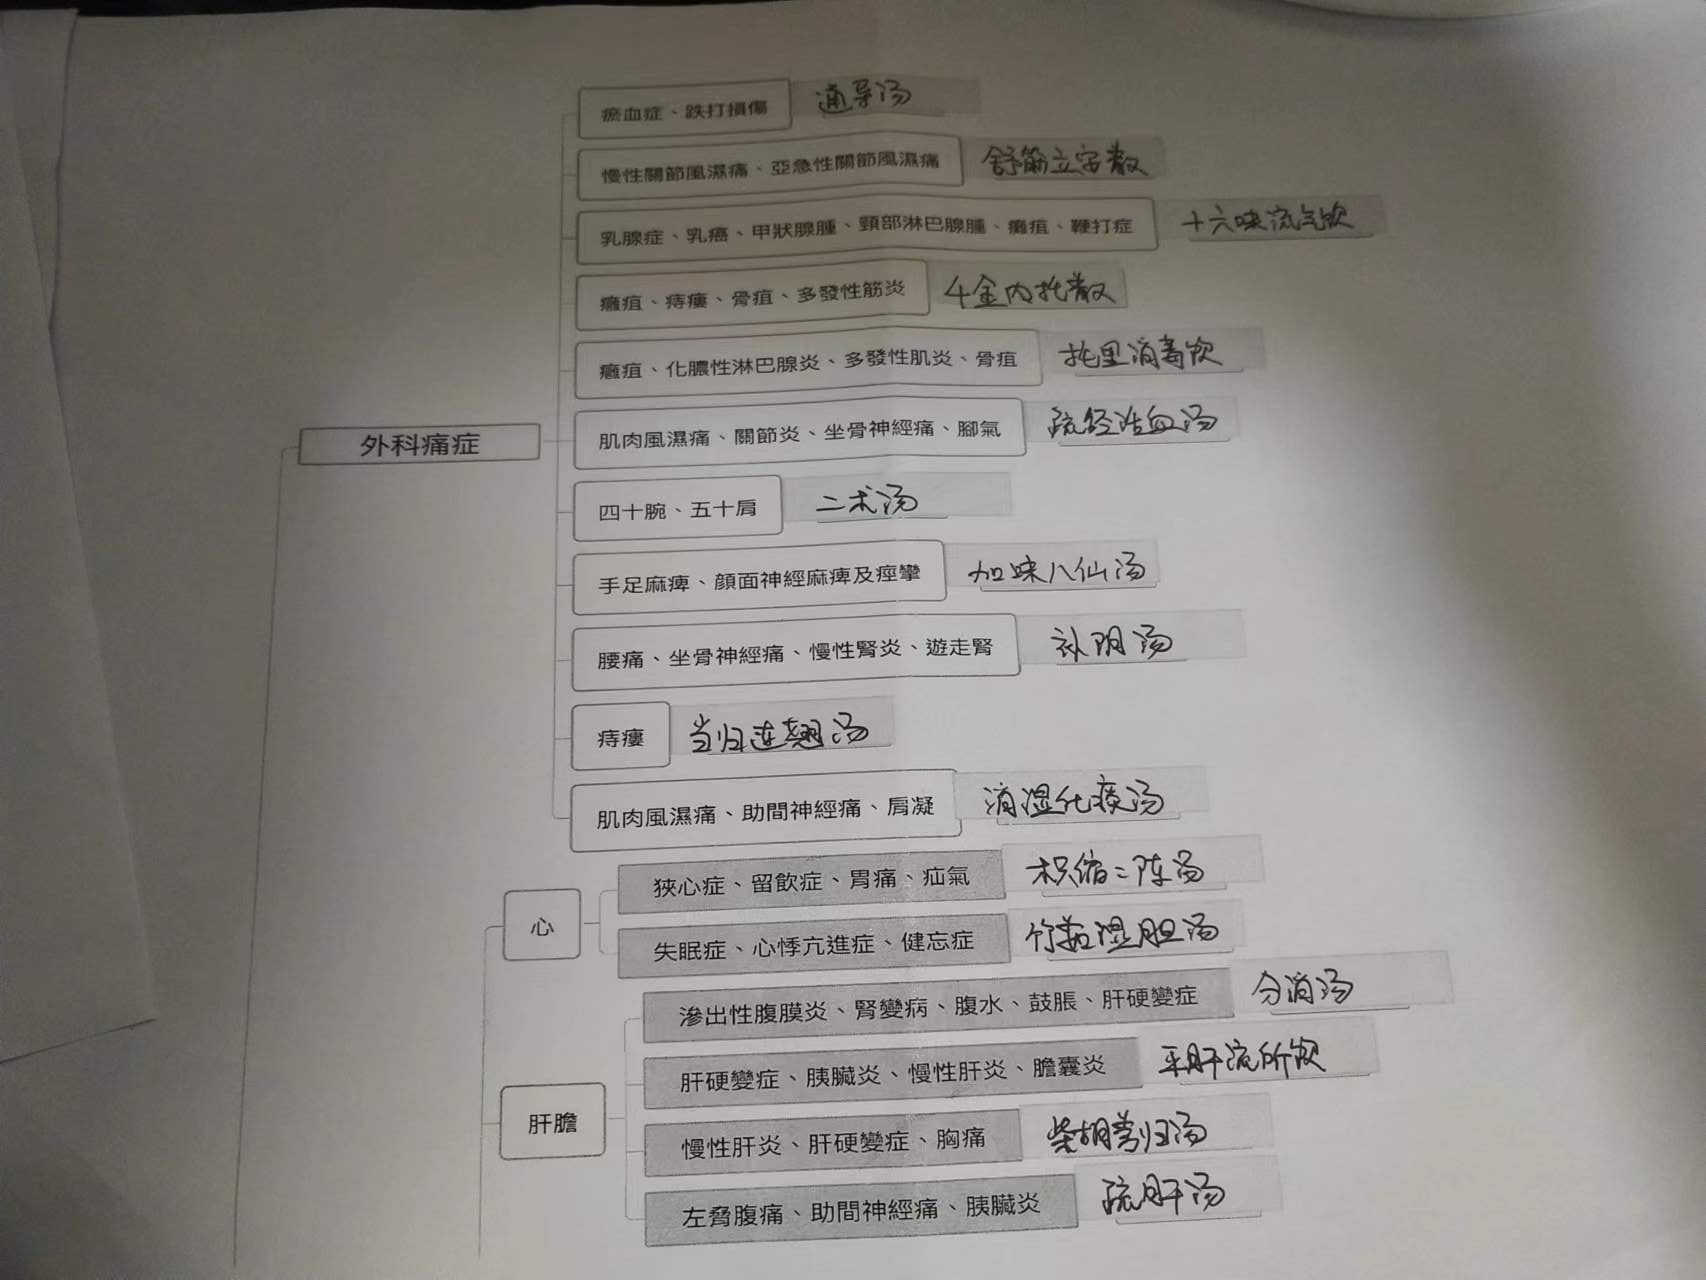 瘀血症、跌打損傷 通导汤
慢性關節風濕痛、亞急性關節風濕痛 舒筋立安散
乳腺症、乳癌、甲狀腺腫、頸部淋巴腺腫、癰疽、鞭打症 十六味流气饮
癰疽、痔瘻、骨疽、多發性筋炎 千金内托散
癰疽、化膿性淋巴腺炎、多發性肌炎、骨疽 托里消毒饮
外科痛症
肌肉風濕痛、關節炎、坐骨神經痛、腳氣 疏经活血汤
四十腕、五十肩 二术汤
手足麻痺、顏面神經麻痺及痙攣 加味八仙汤
腰痛、坐骨神經痛、慢性腎炎、遊走腎 补阴汤
痔瘻 当归连翘汤
肌肉風濕痛、助間神經痛、肩凝 消湿化痰汤
心
狹心症、留飲症、胃痛、疝氣 枳缩二陈汤
失眠症、心悸亢進症、健忘症 竹茹湿胆汤
滲出性腹膜炎、腎變病、腹水、鼓脹、肝硬變症 分消汤
肝膽
肝硬變症、胰臟炎、慢性肝炎、膽囊炎 肝流饮
慢性肝炎、肝硬變症、胸痛 柴胡归汤
左脅腹痛、助間神經痛、胰臟炎 疏肝汤